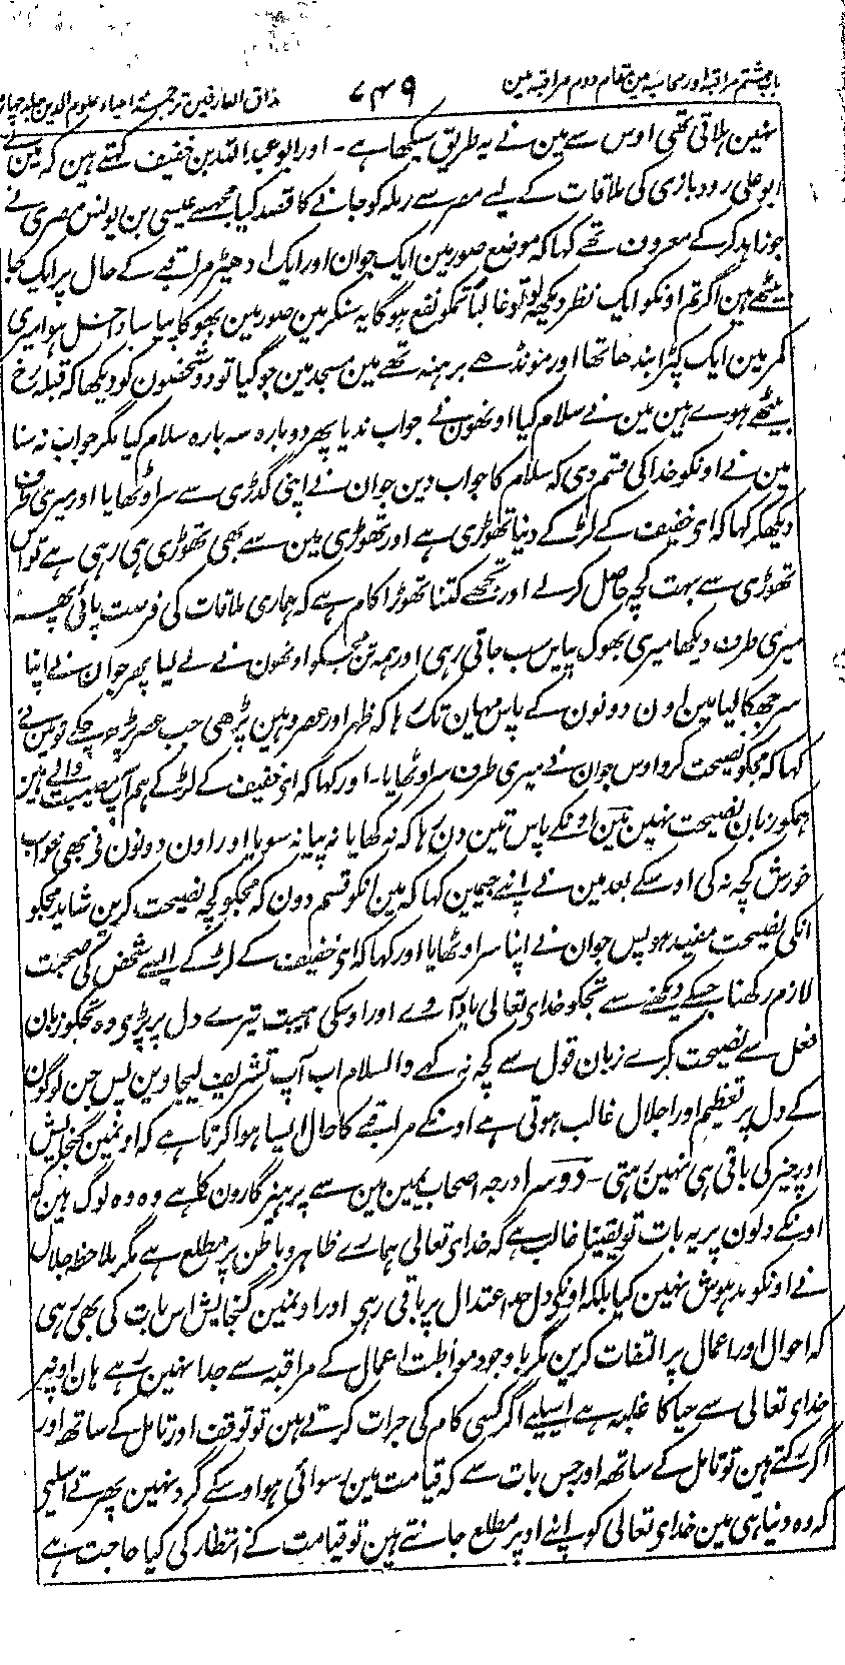 باب ہشتم مراقبہ اور محاسبہ مین مقام دوم مراقبہ مین
۷۴۹
مذاق العارفین ترجمہ احیاء علوم الدین جلد چہارم
نہین ہلاتی تھی اوس سے مین نے یہ طریق سیکھا ہے۔ اور ابو عبداللہ بن خفیف کہتے ہین کہ مین نے
ابو علی رودباری کی ملاقات کے لیے مصر سے رملہ کو جانے کا قصد کیا مجھسے عیسی بن یونس مصری نے
جو زاہد کرکے معروف تھے کہا کہ موضع صور مین ایک جوان اور ایک ادھیڑ مراقبے کے حال پر ایک جا
بیٹھے ہین اگر تم اونکو ایک نظر دیکھ لو تو غالباً تمکو نفع ہوگا یہ سنکر مین صور مین بھوکا پیاسا داخل ہوا میری
کمر مین ایک کپڑا بندھا تھا اور مونڈھے برہنہ تھے مین مسجد مین جو گیا تو دو شخصون کو دیکھا کہ قبلہ رخ
بیٹھے ہوے ہین مین نے سلام کیا اونھون نے جواب ندیا پھر دوبارہ سہ بارہ سلام کیا مگر جواب نہ سنا
مین نے اونکو خدا کی قسم دی کہ سلام کا جواب دین جوان نے اپنی گدڑی سے سر اوٹھایا اور میری طرف
دیکھکر کہا کہ ای خفیف کے لڑکے دنیا تھوڑی ہے اور تھوڑی مین سے بھی تھوڑی ہی رہی ہے تو اس
تھوڑی سے بہت کچھ حاصل کرلے اور تجھے کتنا تھوڑا کام ہے کہ ہماری ملاقات کی فرصت پائی پھر
میری طرف دیکھا میری بھوک پیاس سب جاتی رہی اور ہمہ تن مجھکو اونھون نے لے لیا پھر جوان نے اپنا
سر جھکا لیا مین اون دونون کے پاس یہان تک رہا کہ ظہر اور عصر وہین پڑھی جب عصر پڑھ چکے تو مین نے
کہا کہ مجکو نصیحت کرو اوس جوان نے میری طرف سر اوٹھایا۔ اور کہا کہ ای خفیف کے لڑکے ہم آپ مصیبت والے ہین
ہمکو زبان نصیحت نہین مین اونکے پاس تین دن رہا کہ نہ کھایا نہ پیا نہ سویا اور اون دونون نے بھی خواب
خورش کچھ نہ کی اوسکے بعد مین نے اپنے جیمین کہا کہ مین انکو قسم دون کہ مجکو کچھ نصیحت کرین شاید مجکو
انکی نصیحت مفید ہو پس جوان نے اپنا سر اوٹھایا اور کہا کہ ای خفیف کے لڑکے ایسے شخص کی صحبت
لازم رکھنا جسکے دیکھنے سے تجکو خدای تعالی یاد آوے اور اوسکی ہیبت تیرے دل پر پڑی وہ تجکو زبان
فعل سے نصیحت کرے زبان قول سے کچھ نہ کہے والسلام اب آپ تشریف لیجاوین پس جن لوگون
کے دل پر تعظیم اور اجلال غالب ہوتی ہے اونکے مراقبے کا حال ایسا ہوا کرتا ہے کہ اونمین گنجایش
اور چیز کی باقی ہی نہین رہتی۔ دوسرا درجہ اصحاب یمین مین سے پرہیزگارون کا ہے وہ وہ لوگ ہین کہ
اونکے دلون پر یہ بات تو یقینا غالب ہے کہ خدای تعالی ہمارے ظاہر و باطن پر مطلع ہے مگر ملاحظہ جلال
نے اونکو مدہوش نہین کیا بلکہ اونکی دل حد اعتدال پر باقی رہی اور اونمین گنجایش اس بات کی بھی رہی
کہ احوال اور اعمال پر التفات کرین مگر باوجود مواظبت اعمال کے مراقبہ سے جدا نہین رہے ہان اونپر
خدای تعالی سے حیا کا غلبہ ہے اسلیے اگر کسی کام کی جرات کرتے ہین تو توقف اور تامل کے ساتھ اور
اگر رکتے ہین تو تامل کے ساتھ اور جس بات سے کہ قیامت مین رسوائی ہو اوسکے گرد نہین پھرتے اسلیے
کہ وہ دنیا ہی مین خدای تعالی کو اپنے اوپر مطلع جانتے ہین تو قیامت کے انتظار کی کیا حاجت ہے